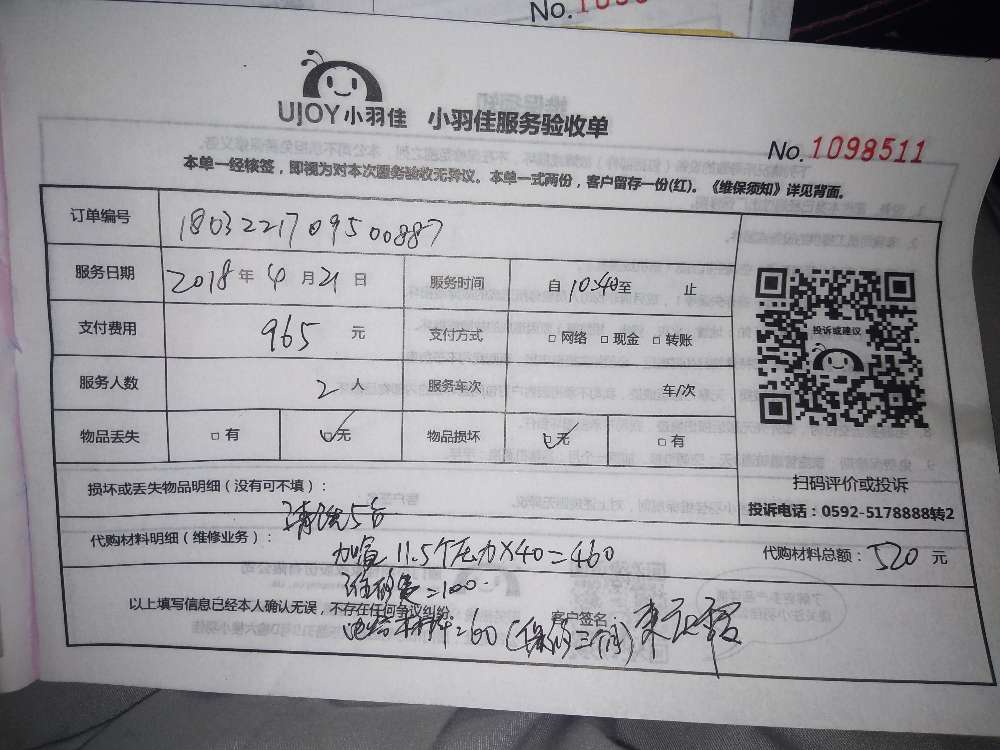 No.
UJOY小羽佳 小羽佳服务验收单
No. 1098511
本单一经核签，即视为对本次服务验收无异议。本单一式两份，客户留存一份(红)。《维保须知》详见背面。
订单编号 1803221709500887
服务日期 2018年4月21日 服务时间 自10:40至 止
支付费用 965元 支付方式 □网络 □现金 □转账
投诉或建议
服务人数 2人 服务车次 车/次
物品丢失 □有 ☑无 物品损坏 ☑无 □有
扫码评价或投诉
投诉电话：0592-5178888转2
损坏或丢失物品明细（没有可不填）：
清洗5台
代购材料明细（维修业务）： 代购材料总额：520元
加 11.5个压力×40=460
=100
以上填写信息已经本人确认无误，不存在任何争议纠纷。 客户签名：
=60(保修三个月)